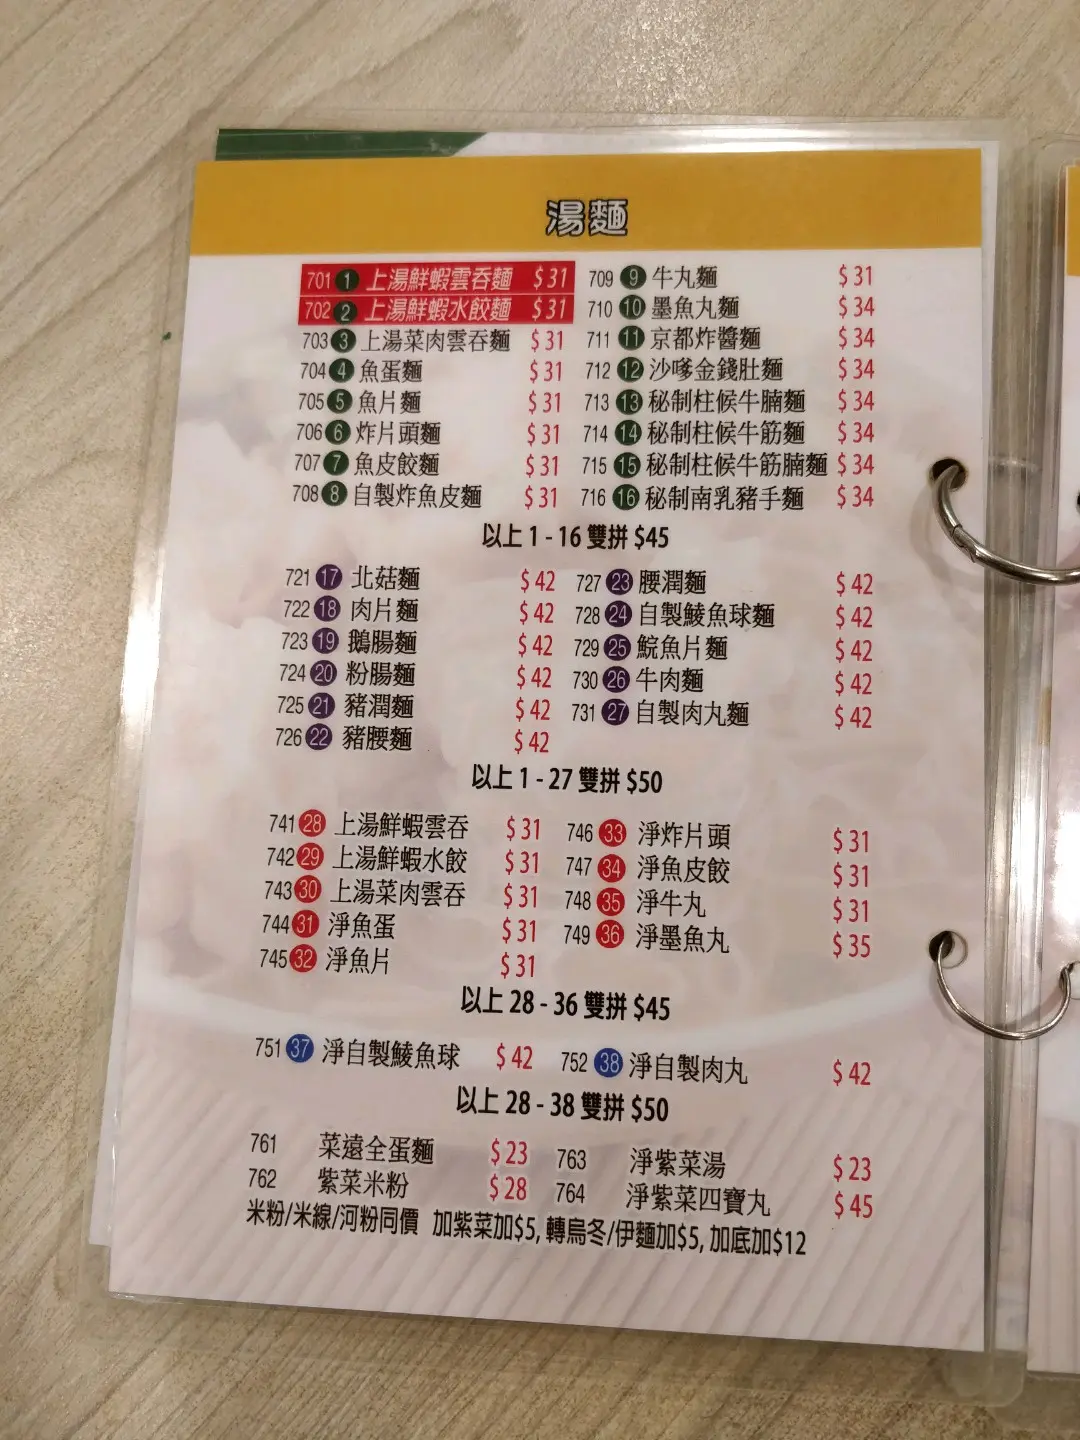 湯麵
701 1 上湯鮮蝦雲吞麵 $31
702 2 上湯鮮蝦水餃麵 $31
703 3 上湯菜肉雲吞麵 $31
704 4 魚蛋麵 $31
705 5 魚片麵 $31
706 6 炸片頭麵 $31
707 7 魚皮餃麵 $31
708 8 自製炸魚皮麵 $31
709 9 牛丸麵 $31
710 10 墨魚丸麵 $34
711 11 京都炸醬麵 $34
712 12 沙嗲金錢肚麵 $34
713 13 秘制柱候牛腩麵 $34
714 14 秘制柱候牛筋麵 $34
715 15 秘制柱候牛筋腩麵 $34
716 16 秘制南乳豬手麵 $34
以上 1 - 16 雙拼 $45
721 17 北菇麵 $42
722 18 肉片麵 $42
723 19 鵝腸麵 $42
724 20 粉腸麵 $42
725 21 豬潤麵 $42
726 22 豬腰麵 $42
727 23 腰潤麵 $42
728 24 自製鯪魚球麵 $42
729 25 鯇魚片麵 $42
730 26 牛肉麵 $42
731 27 自製肉丸麵 $42
以上 1 - 27 雙拼 $50
741 28 上湯鮮蝦雲吞 $31
742 29 上湯鮮蝦水餃 $31
743 30 上湯菜肉雲吞 $31
744 31 淨魚蛋 $31
745 32 淨魚片 $31
746 33 淨炸片頭 $31
747 34 淨魚皮餃 $31
748 35 淨牛丸 $31
749 36 淨墨魚丸 $35
以上 28 - 36 雙拼 $45
751 37 淨自製鯪魚球 $42
752 38 淨自製肉丸 $42
以上 28 - 38 雙拼 $50
761 菜遠全蛋麵 $23
762 紫菜米粉 $28
763 淨紫菜湯 $23
764 淨紫菜四寶丸 $45
米粉/米線/河粉同價 加紫菜加$5, 轉烏冬/伊麵加$5, 加底加$12